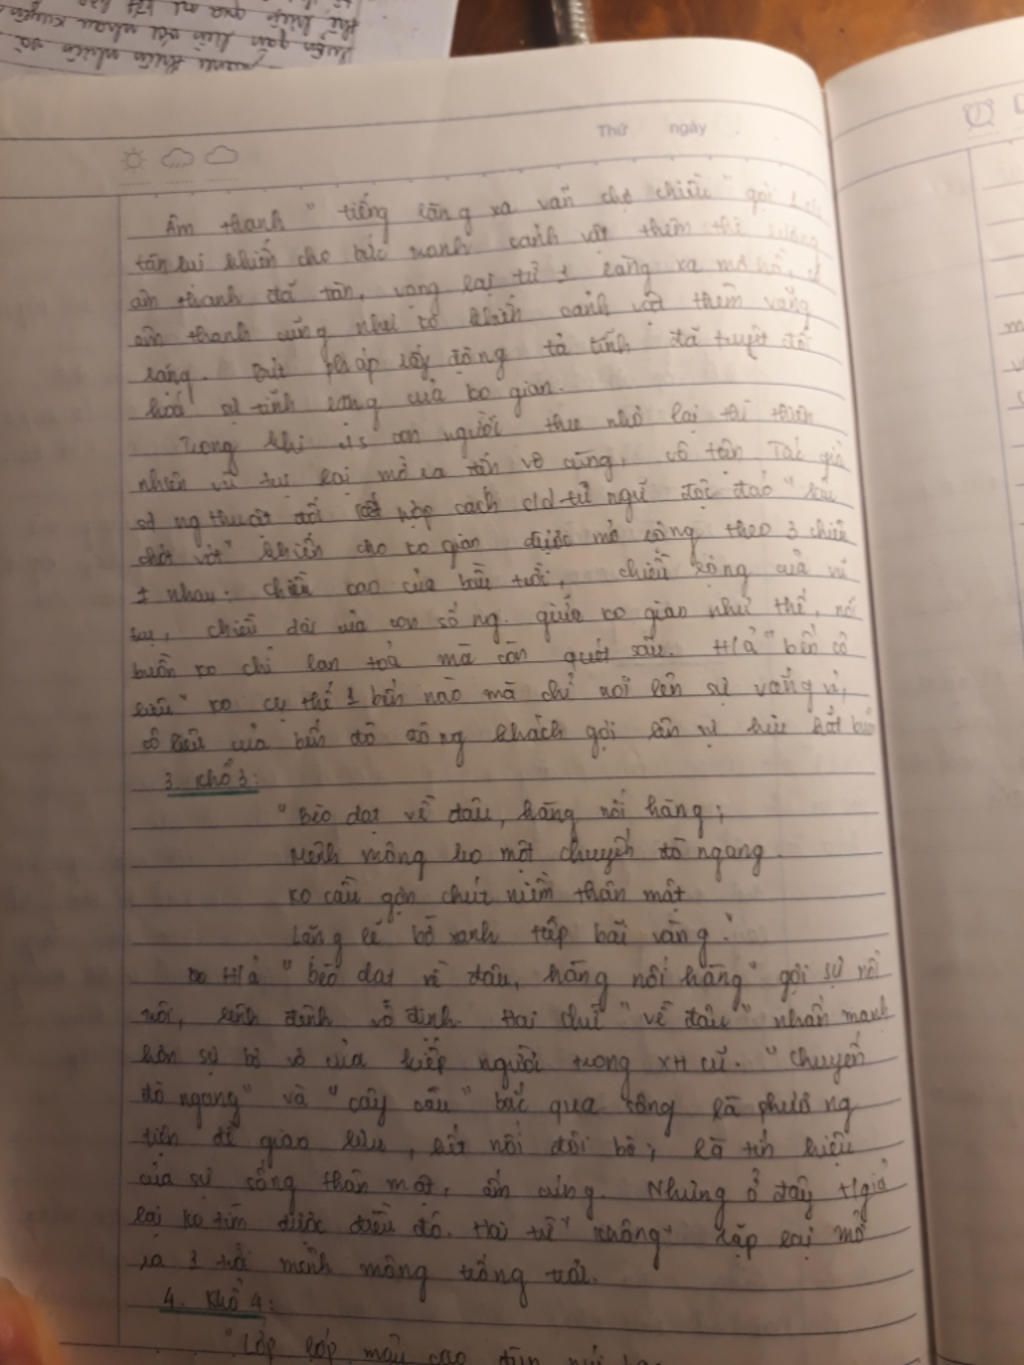 thiên nhiên và
luôn gắn liền với nhau
thể hiện qua
Thứ ngày
Âm thanh " tiếng làng xa vãn chợ chiều" gợi
tàn lụi khiến cho bức tranh cảnh vật thêm thê lương
âm thanh đã tàn, vang lại từ 1 làng xa mơ hồ,
âm thanh cũng như ko khiến cảnh vật thêm vắng
lặng. Bút pháp lấy động tả tĩnh đã tuyệt đối
hoá sự tĩnh lặng của ko gian.
Trong khi con người thu nhỏ lại thì thiên
nhiên vũ trụ lại mở ra đến vô cùng, vô tận Tác giả
sd nghthuật đối kết hợp cách d/d từ ngữ độc đáo " sâu
chót vót" khiến cho ko gian được mở rộng theo 3 chiều
≠ nhau: chiều cao của bầu trời, chiều rộng của vũ
trụ, chiều dài của con sông. giữa ko gian như thế, nỗi
buồn ko chỉ lan toả mà còn sâu. H/ả " bến cô
liêu" ko cụ thể 1 bến nào mà chỉ nói lên sự vắng vẻ,
cô liêu của bến đò sông khách gợi lên sự hiu hắt buồn
3. Khổ 3:
"Bèo dạt về đâu, hàng nối hàng;
Mênh mông ko một chuyến đò ngang.
Ko cầu gợn chút niềm thân mật
Lặng lẽ bờ xanh tiếp bãi vàng."
H/ả " bèo dạt về đâu, hàng nối hàng" gợi sự nổi
trôi, lênh đênh vô định. Hai chữ " về đâu" nhấn mạnh
hơn sự bơ vơ của kiếp người trong XH cũ. "Chuyến
đò ngang" và "cây cầu" bắc qua sông là phương
tiện để giao lưu, kết nối đôi bờ; là tín hiệu
của sự sống thân mật, ấm cúng. Nhưng ở đây t/giả
lại ko tìm được điều đó. Hai từ " không" lặp lại mở
ra 1 mênh mông trống trải.
4. Khổ 4:
"Lớp lớp mây cao đùn núi bạc